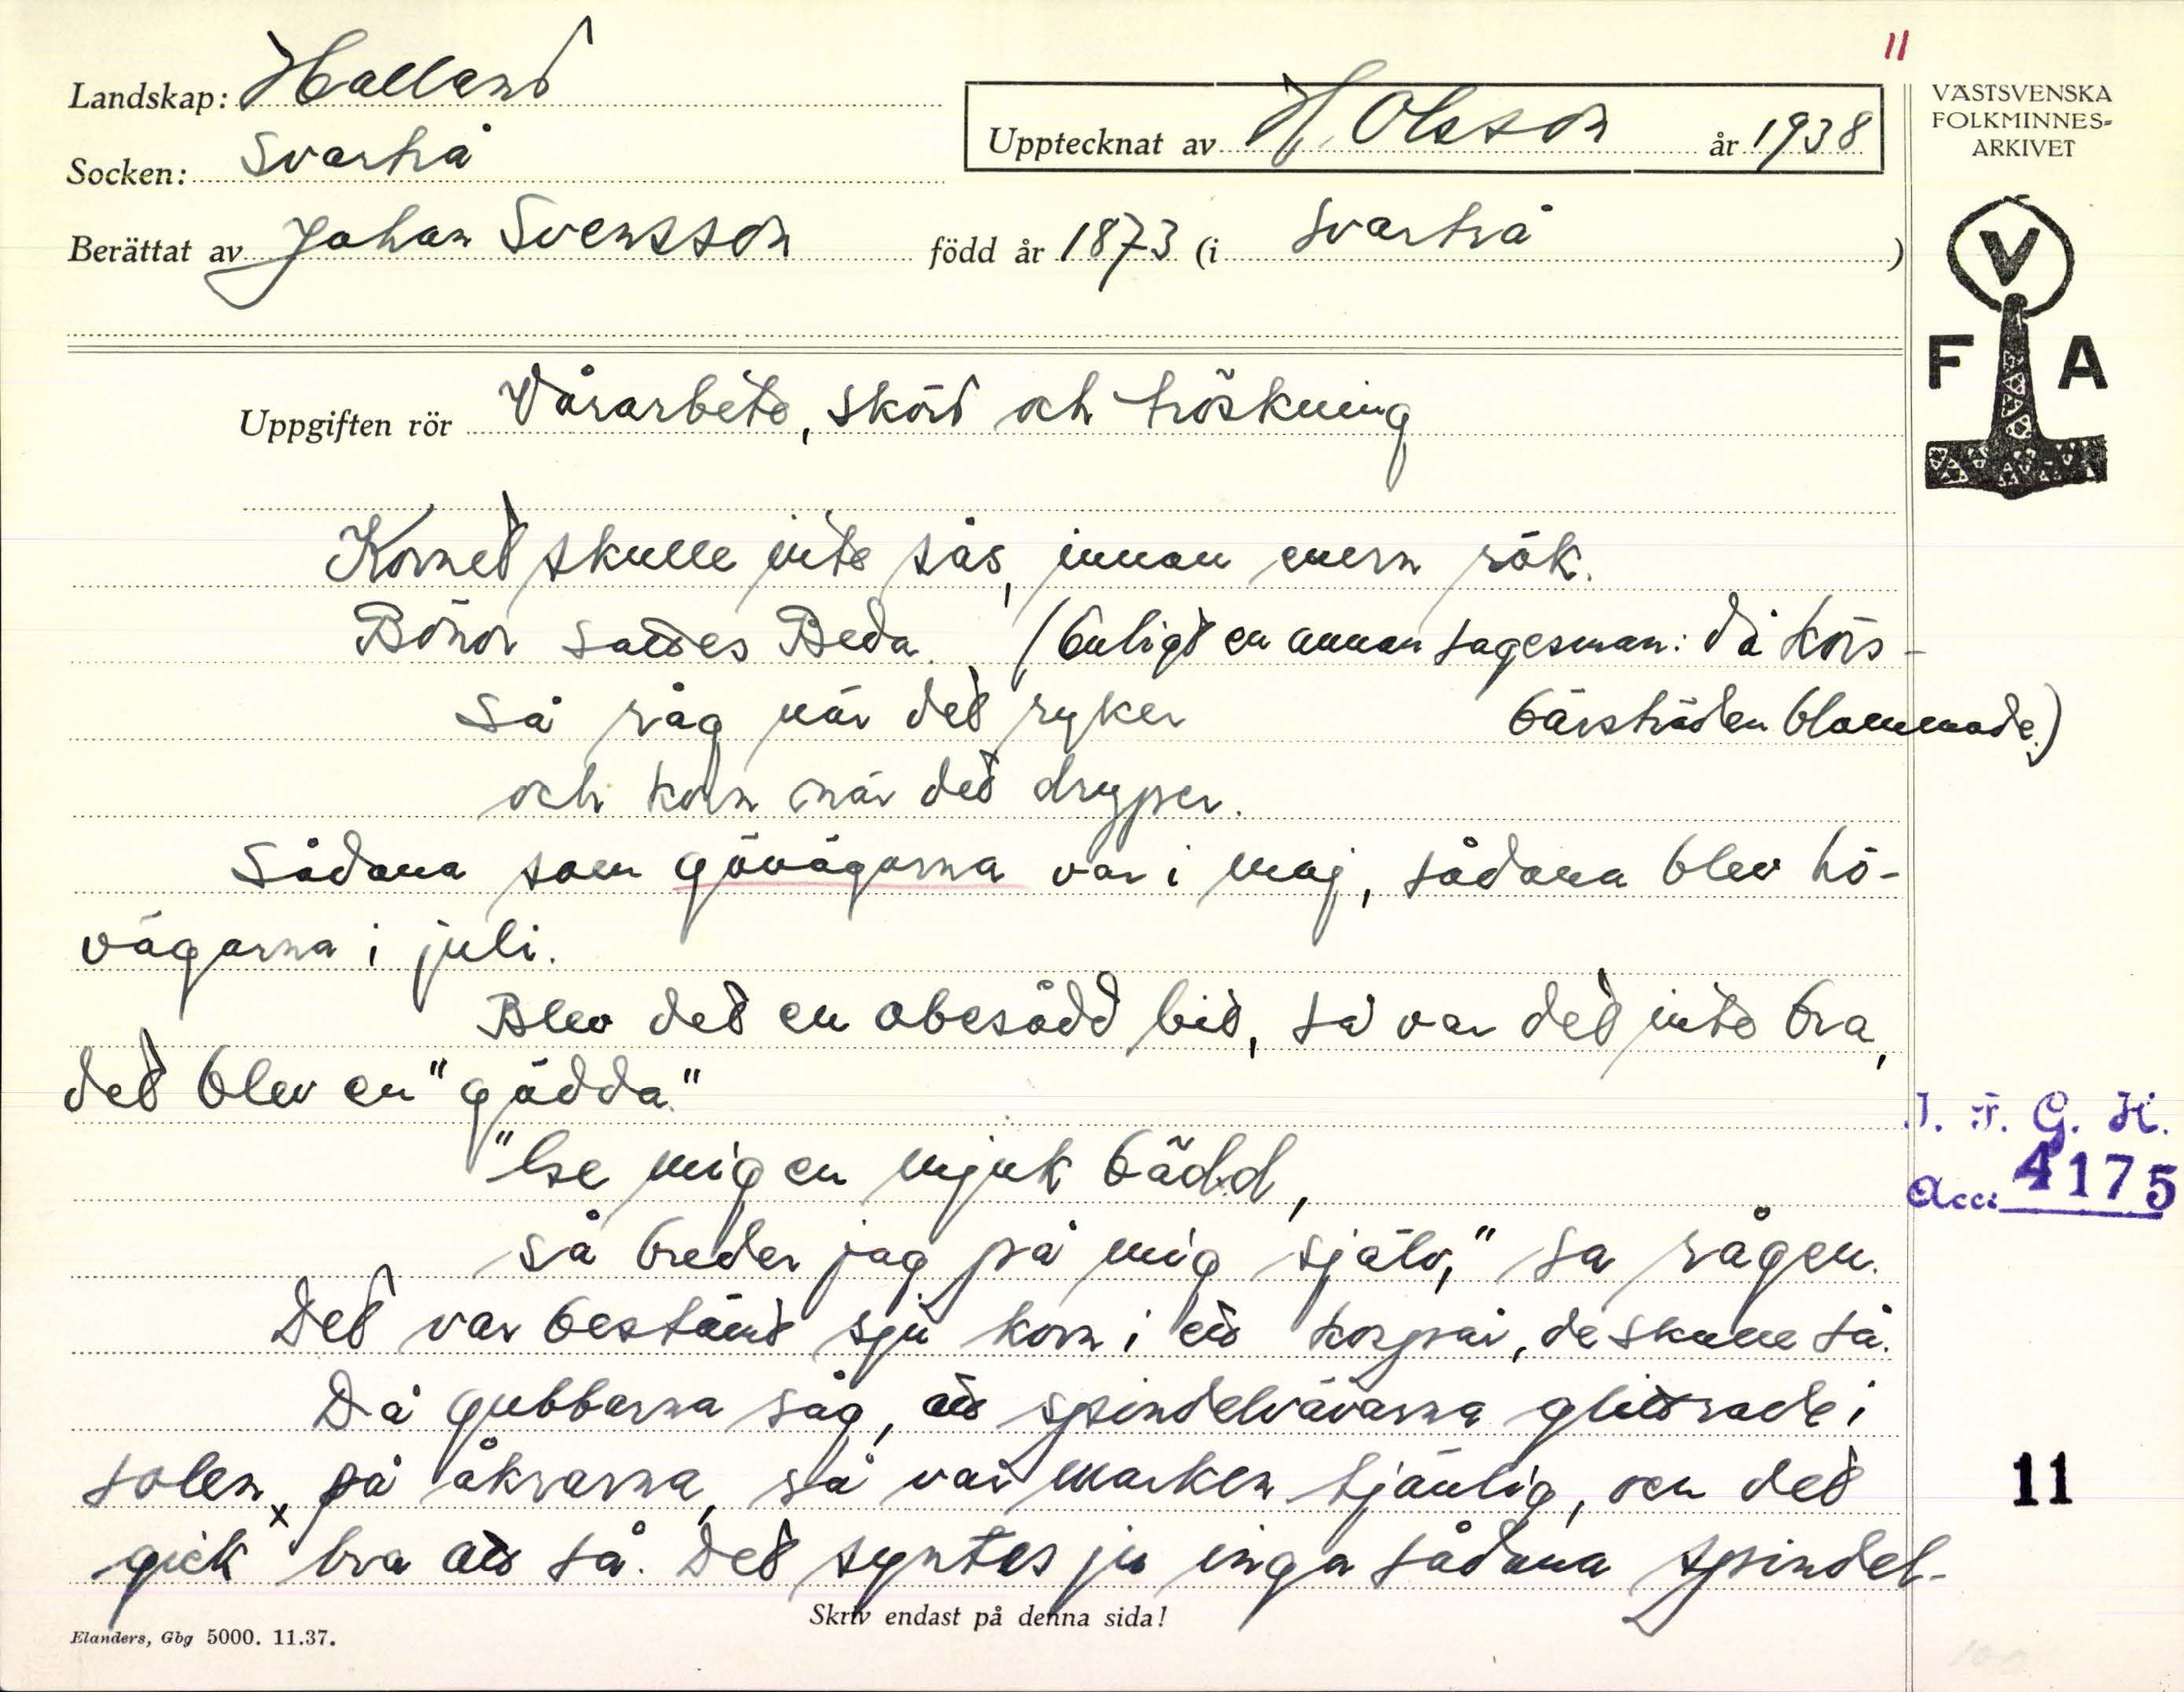 11
Landskap: Halland
Socken: Svartrå
Upptecknat av H. Olsson år 1938
Berättat av Johan Svensson född år 1873 (i Svartrå )
VÄSTSVENSKA
FOLKMINNES-
ARKIVET
V
F A
Uppgiften rör Vårarbete, skörd och tröskning
Kornet skulle inte sås, innan enern rök.
Bönor sattes Beda. (Enligt en annan sagesman: då körs-
bärsträden blommade.)
Så råg när det ryker
och korn när det dryper.
Sådana som gövägarna var i maj, sådana blev hö-
vägarna i juli.
Blev det en obesådd bit, så var det inte bra,
det blev en "gädda."
"Ge mig en mjuk bädd,
så breder jag på mig själv," sa rågen.
Det var bestämt sju korn i ett hospår, de skulle så.
Då gubbarna såg, att spindelvävarna glittrade i
solen på åkrarna, så var marken tjänlig, och det
x
gick bra att så. Det syntes ju inga sådana spindel-
J. F. G. H.
Acc: 4175
11
Skriv endast på denna sida!
Elanders, Gbg 5000. 11.37.